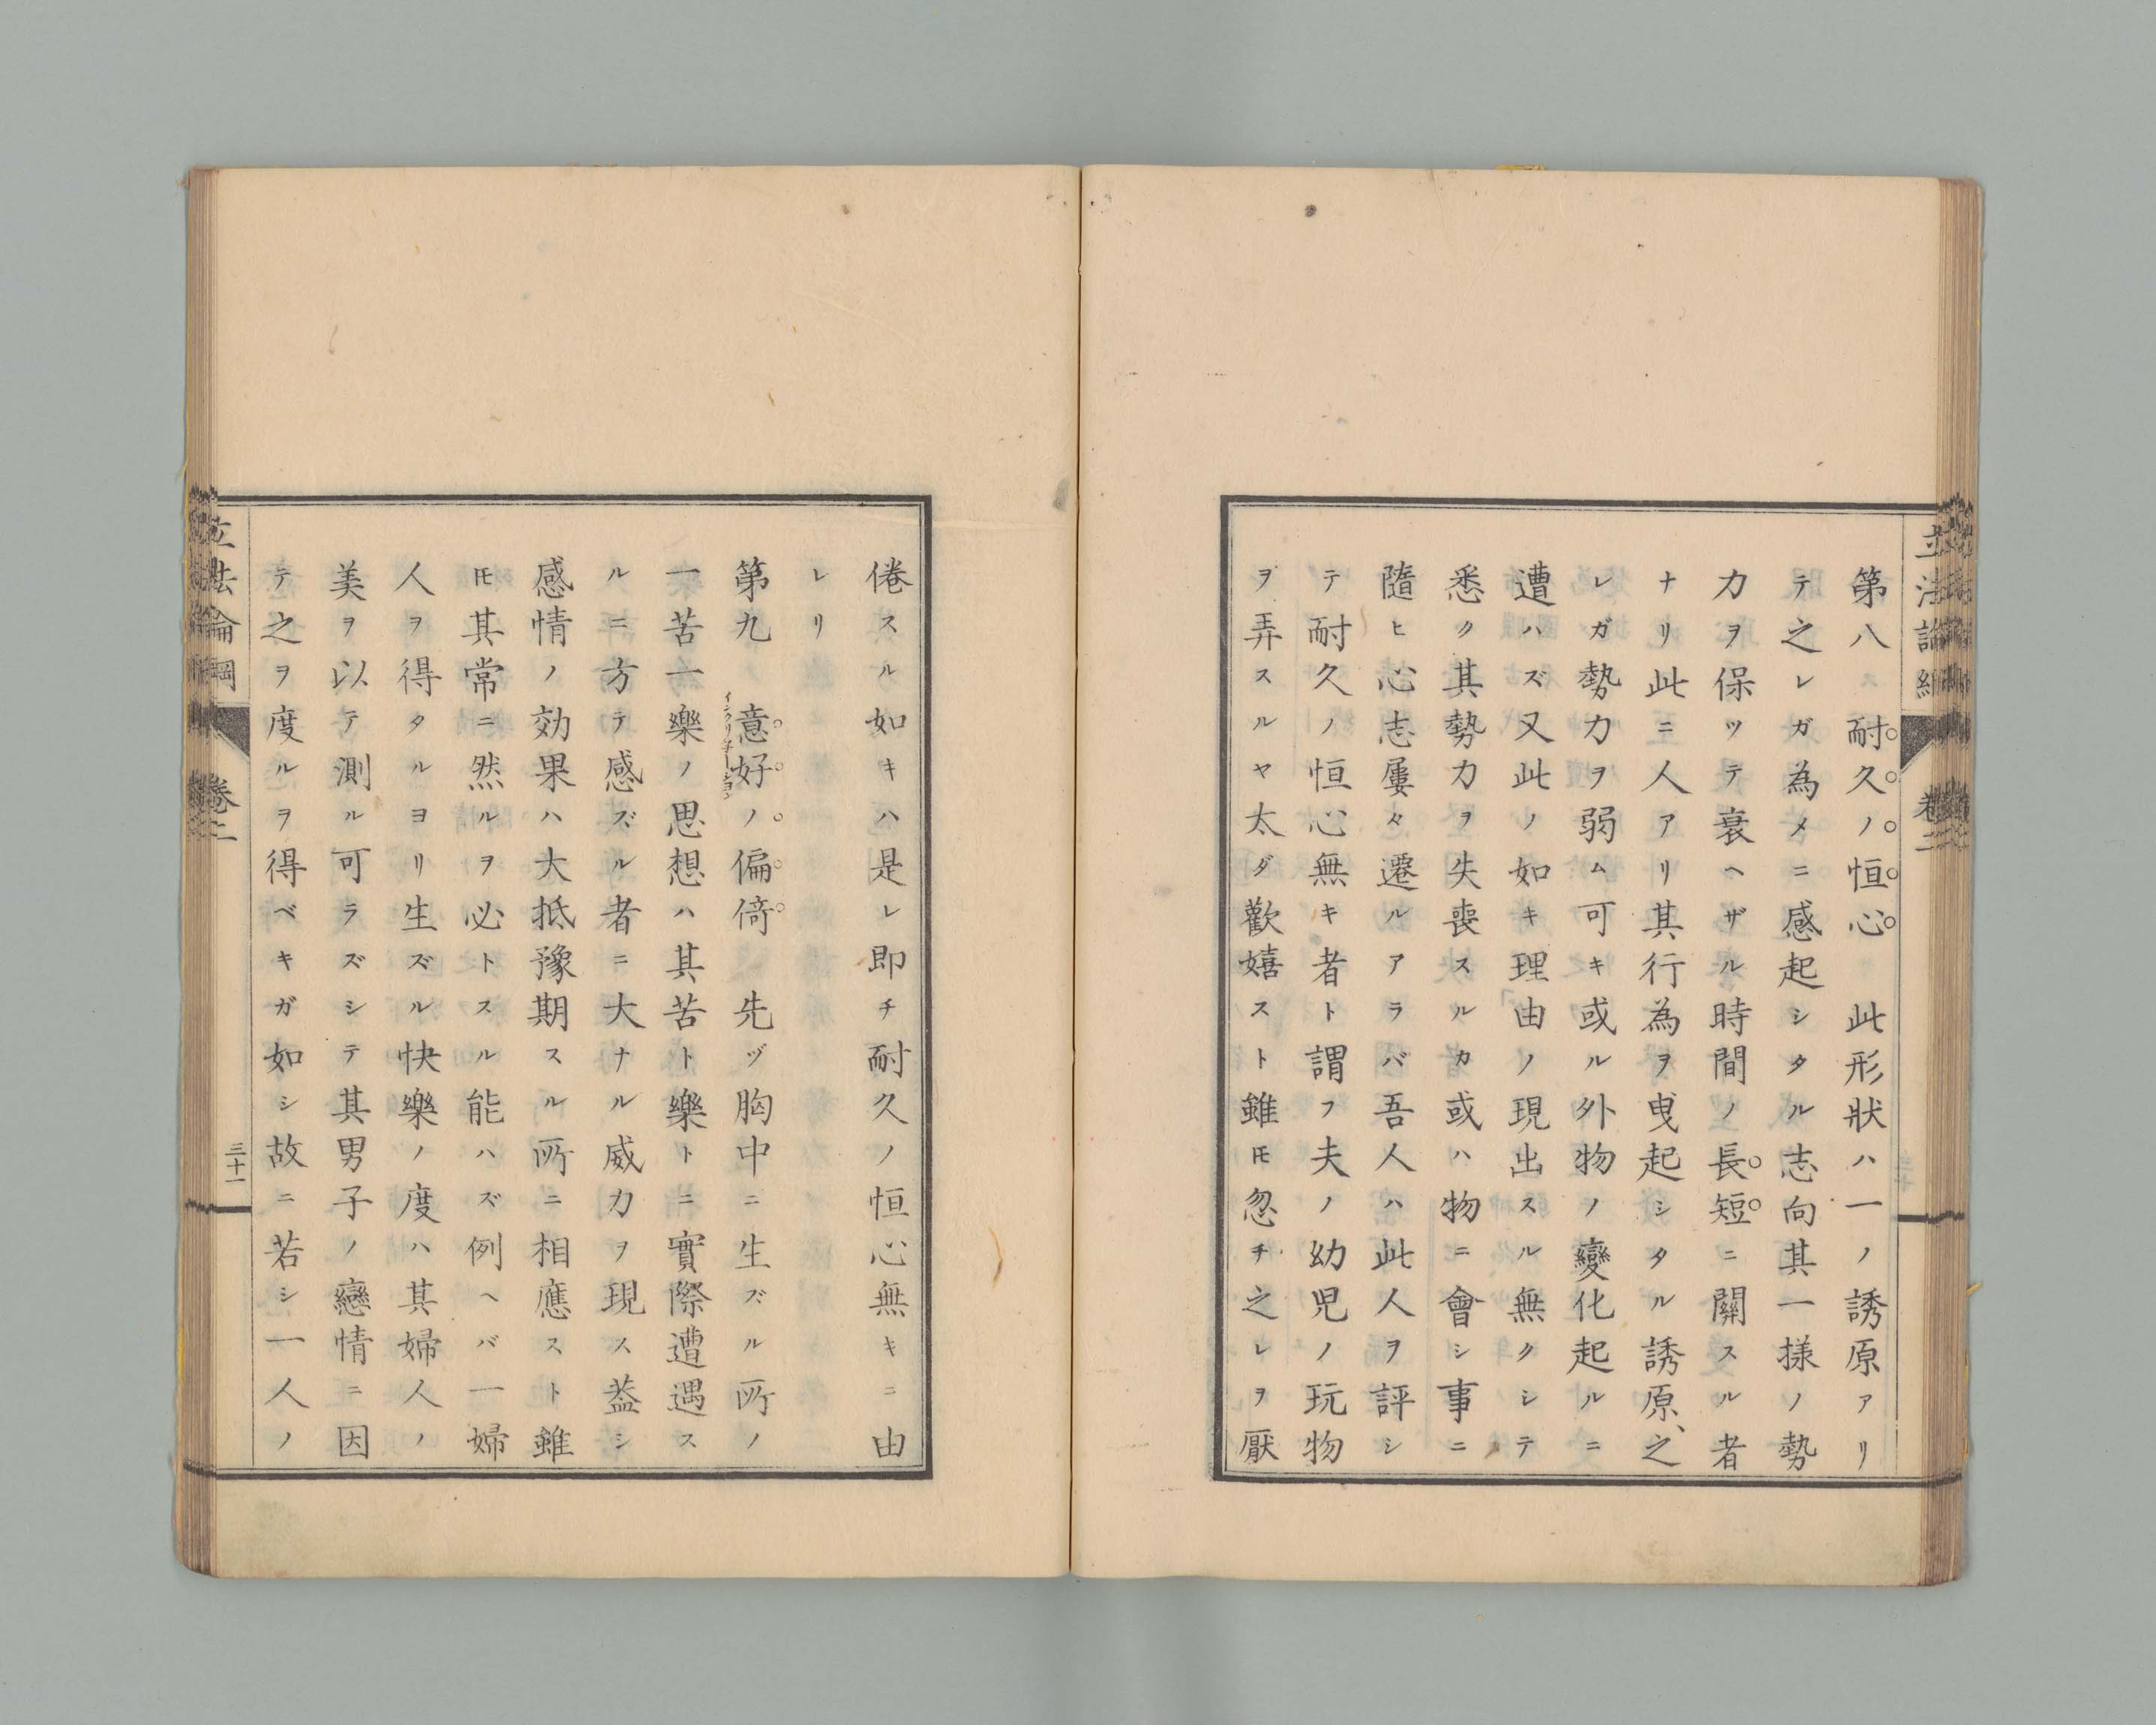 立法論綱
卷二
第八　耐久ノ恒心　此形狀ハ一ノ誘原アリ
テ之レガ為メニ感起シタル志向其一様ノ勢
力ヲ保ツテ衰ヘザル時間ノ長短ニ關スル者
ナリ此ニ人アリ其行為ヲ曵起シタル誘原、之
レガ勢力ヲ弱ム可キ或ル外物ノ變化起ルニ
遭ハズ又此ノ如キ理由ノ現出スル無クシテ
悉ク其勢力ヲ失喪スルカ或ハ物ニ會シ事ニ
隨ヒ心志屢々遷ルアラバ吾人ハ此人ヲ評シ
テ耐久ノ恒心無キ者ト謂フ夫ノ幼児ノ玩物
ヲ弄スルヤ太ダ歡嬉スト雖モ忽チ之レヲ厭
倦スル如キハ是レ即チ耐久ノ恒心無キニ由
レリ
第九　意好ノ偏倚　先ヅ胸中ニ生ズル所ノ
インクリネーション
一苦一樂ノ思想ハ其苦ト樂トニ實際遭遇ス
ルニ方テ感ズル者ニ大ナル威力ヲ現ス蓋シ
感情ノ効果ハ大抵豫期スル所ニ相應スト雖
モ其常ニ然ルヲ必トスル能ハズ例ヘバ一婦
人ヲ得タルヨリ生ズル快樂ノ度ハ其婦人ノ
美ヲ以テ測ル可ラズシテ其男子ノ戀情ニ因
テ之ヲ度ルヲ得ベキガ如シ故ニ若シ一人ノ
立法論綱
卷二
三十一